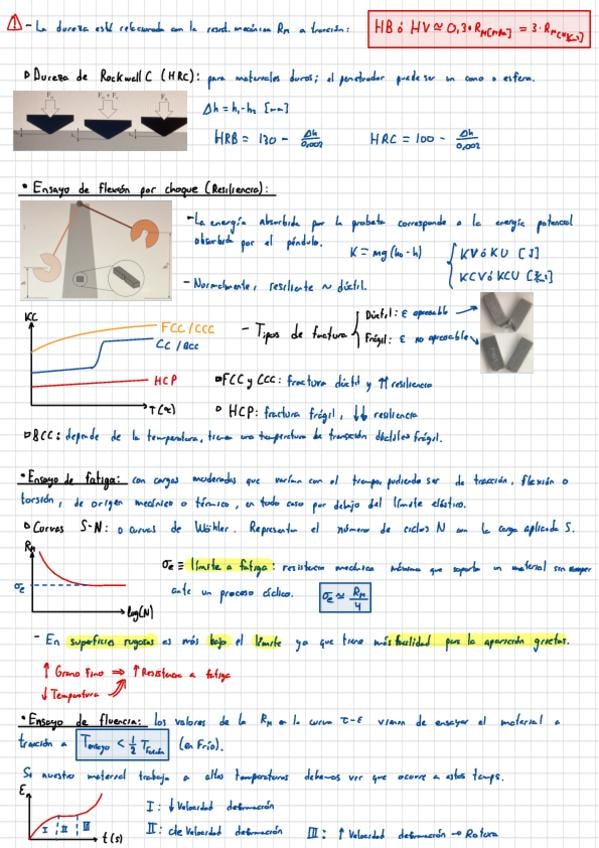 - La dureza está relacionada con la resist. mecánica RM a tracción: HB ó HV ≃ 0,3·RM[MPa] = 3·RM
Dureza de Rockwell C (HRC): para materiales duros; el penetrador puede ser un cono o esfera.
Δh = h₁-h₂ [mm]
HRB = 130 - Δh/0,002 HRC = 100 - Δh/0,002
• Ensayo de flexión por choque (Resiliencia):
- La energía absorbida por la probeta corresponde a la energía potencial
absorbida por el péndulo. K = mg(h₀-h) { KV ó KU [J]
KCV ó KCU
- Normalmente, resiliente ~ dúctil.
KC
FCC/CCC
CC/BCC
HCP
T(ºC)
- Tipos de fractura { Dúctil: ε apreciable
Frágil: ε no apreciable
FCC y CCC: fractura dúctil y ↑↑ resiliencia
HCP: fractura frágil, ↓↓ resiliencia
BCC: depende de la temperatura, tiene una temperatura de transición dúctil frágil.
• Ensayo de fatiga: con cargas moderadas que varían con el tiempo pudiendo ser de tracción, flexión o
torsión, de origen mecánico o térmico, en todo caso por debajo del límite elástico.
Curvas S-N: o curvas de Wöhler. Representan el número de ciclos N con la carga aplicada S.
RM
σe
log(N)
σe ≡ límite a fatiga: resistencia mecánica máxima que soporta un material sin romper
ante un proceso cíclico. σe ≃ RM/4
- En superficies rugosas es más bajo el límite ya que tiene más facilidad para la aparición grietas.
↑ Grano Fino ⇒ ↑ Resistencia a fatiga
↓ Temperatura
• Ensayo de fluencia: los valores de la RM en la curva τ-ε vienen de ensayar el material a
tracción a Tensayo < 1/2 Tfusión (en Frío).
Si nuestro material trabaja a altas temperaturas debemos ver que ocurre a estas temps.
ε
I II III
t(s)
I: ↓ Velocidad deformación
II: cte Velocidad deformación III: ↑ Velocidad deformación → Rotura